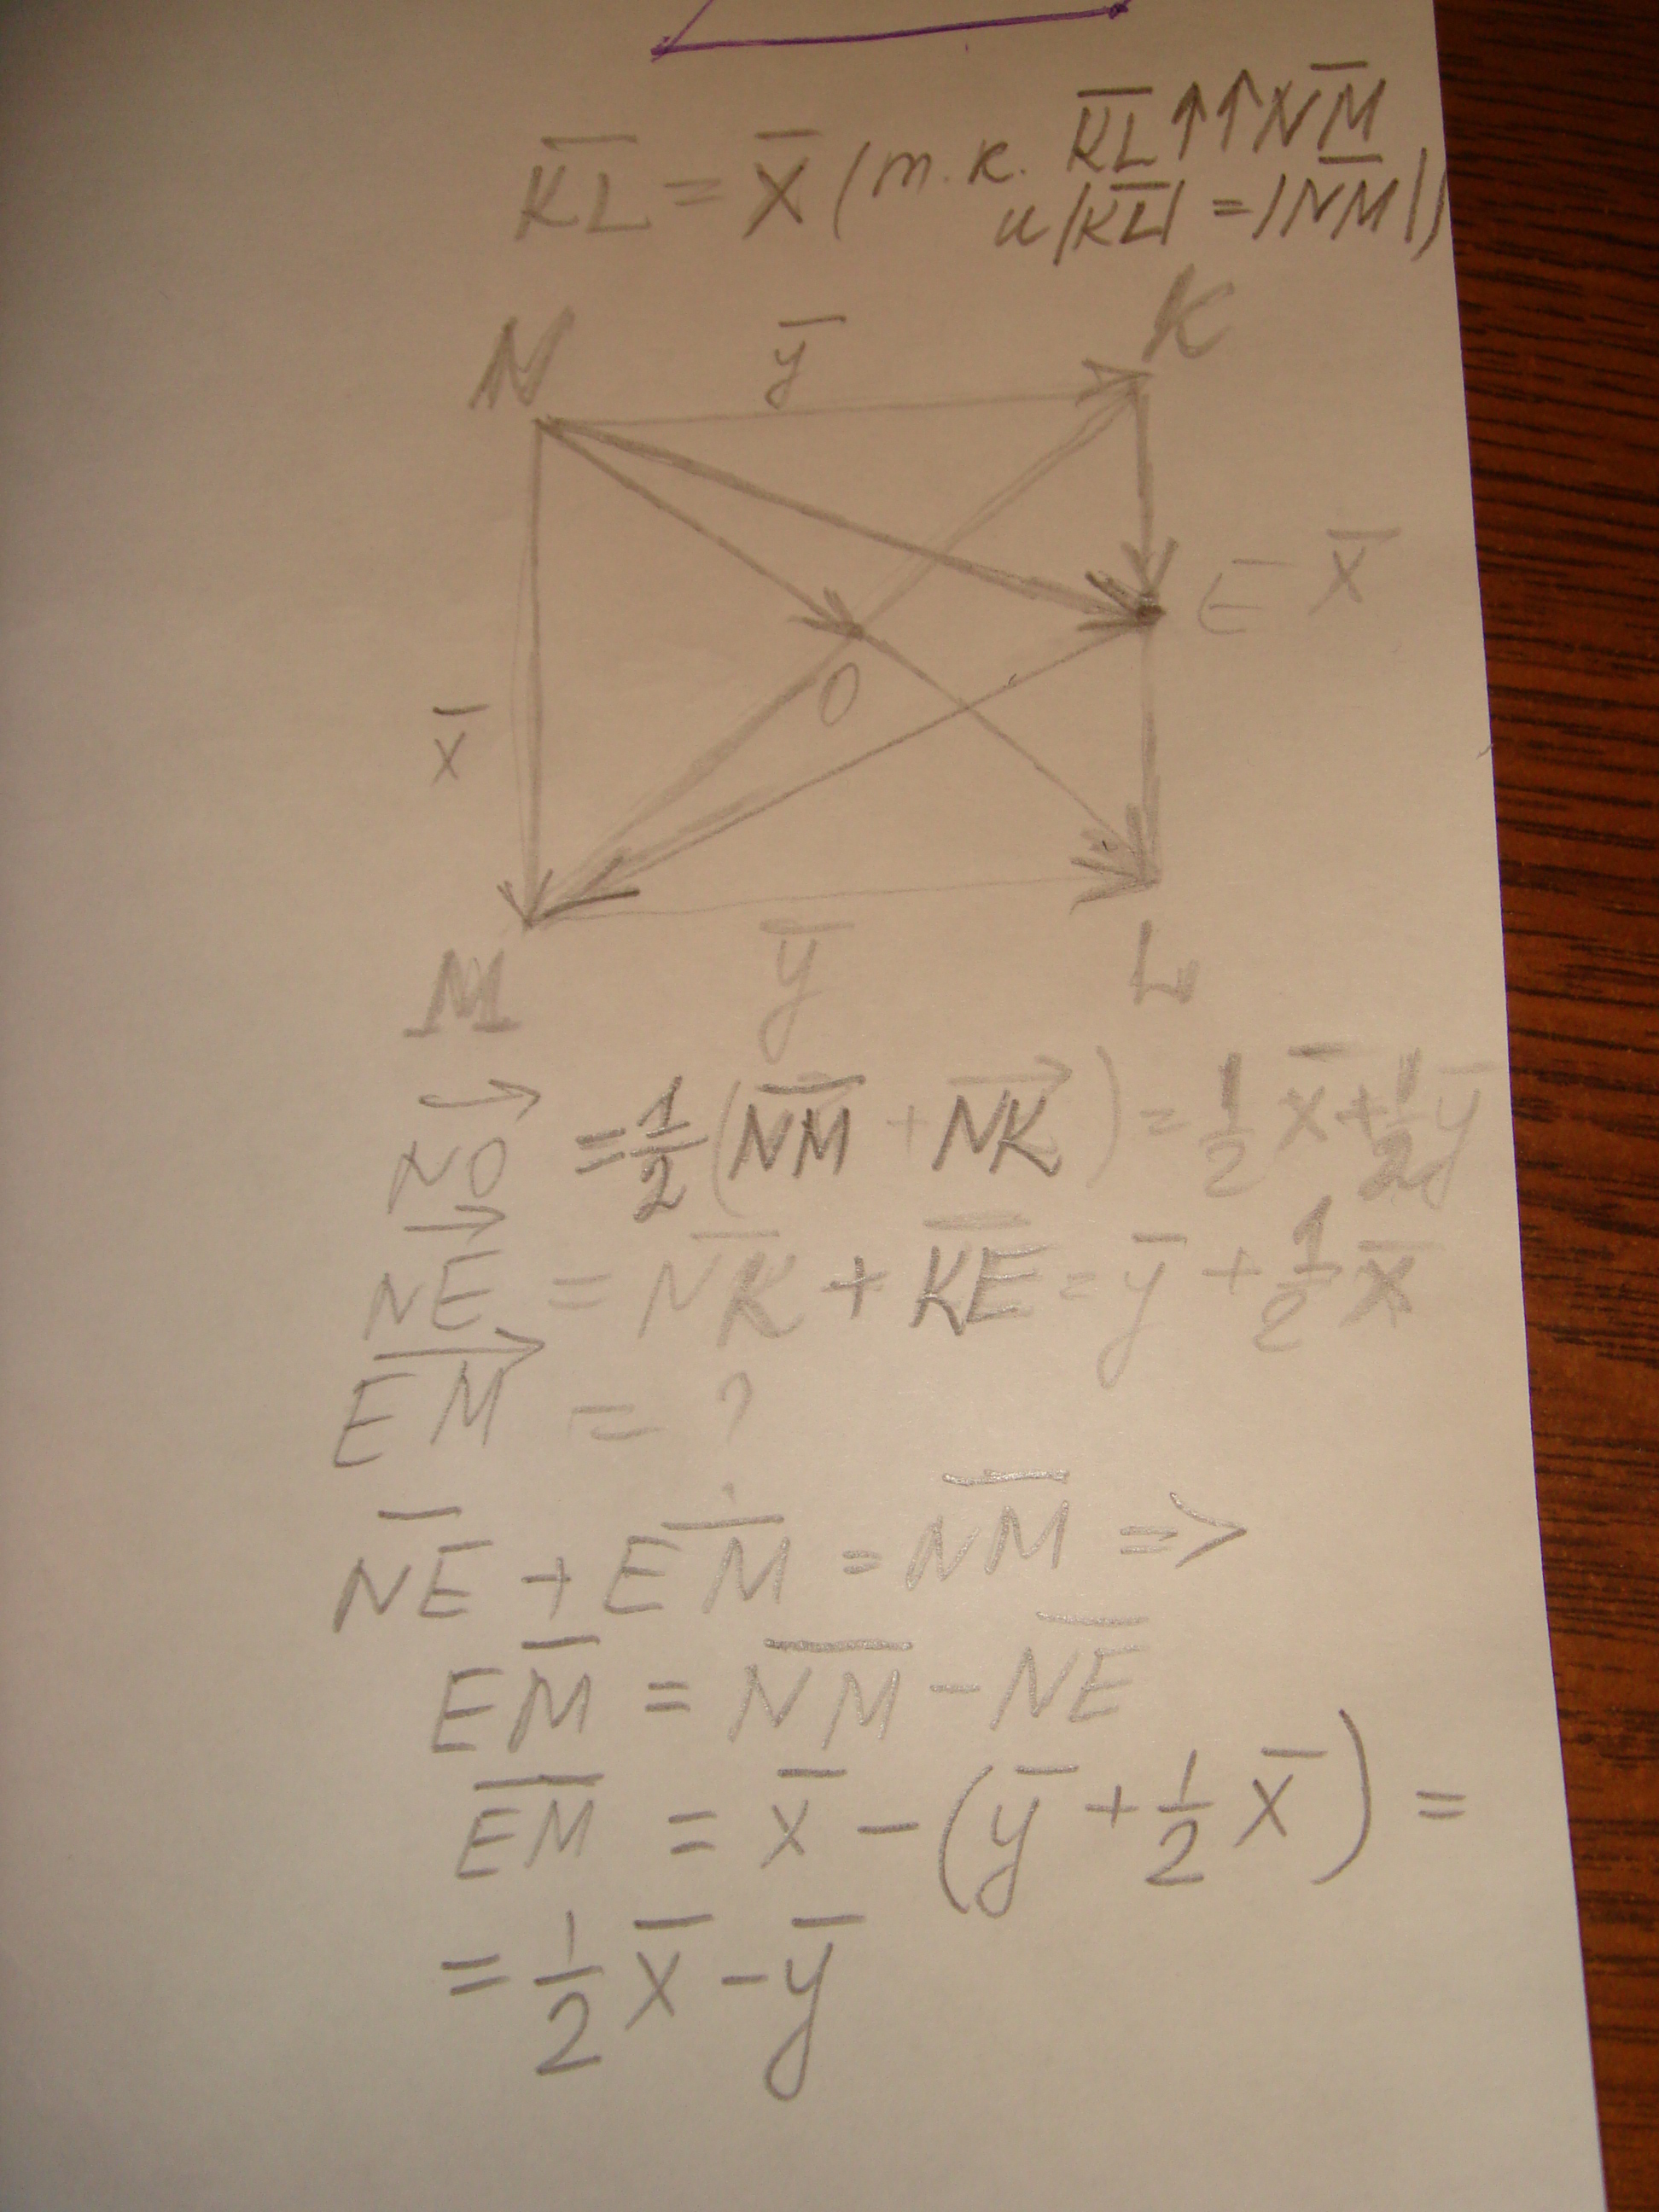 K̅L̅ = x̅ (т.к. K̅L̅ ↑↑ N̅M̅
и |K̅L̅| = |N̅M̅|)
N y̅ K
E x̅
O
x̅
M y̅ L
NO⃗ = 1/2 (N̅M̅ + NK⃗) = 1/2 x̅ + 1/2 y̅
NE⃗ = N̅K̅ + K̅E̅ = y̅ + 1/2 x̅
EM⃗ = ?
N̅E̅ + E̅M̅ = N̅M̅ =>
E̅M̅ = N̅M̅ - N̅E̅
E̅M̅ = x̅ - (y̅ + 1/2 x̅) =
= 1/2 x̅ - y̅